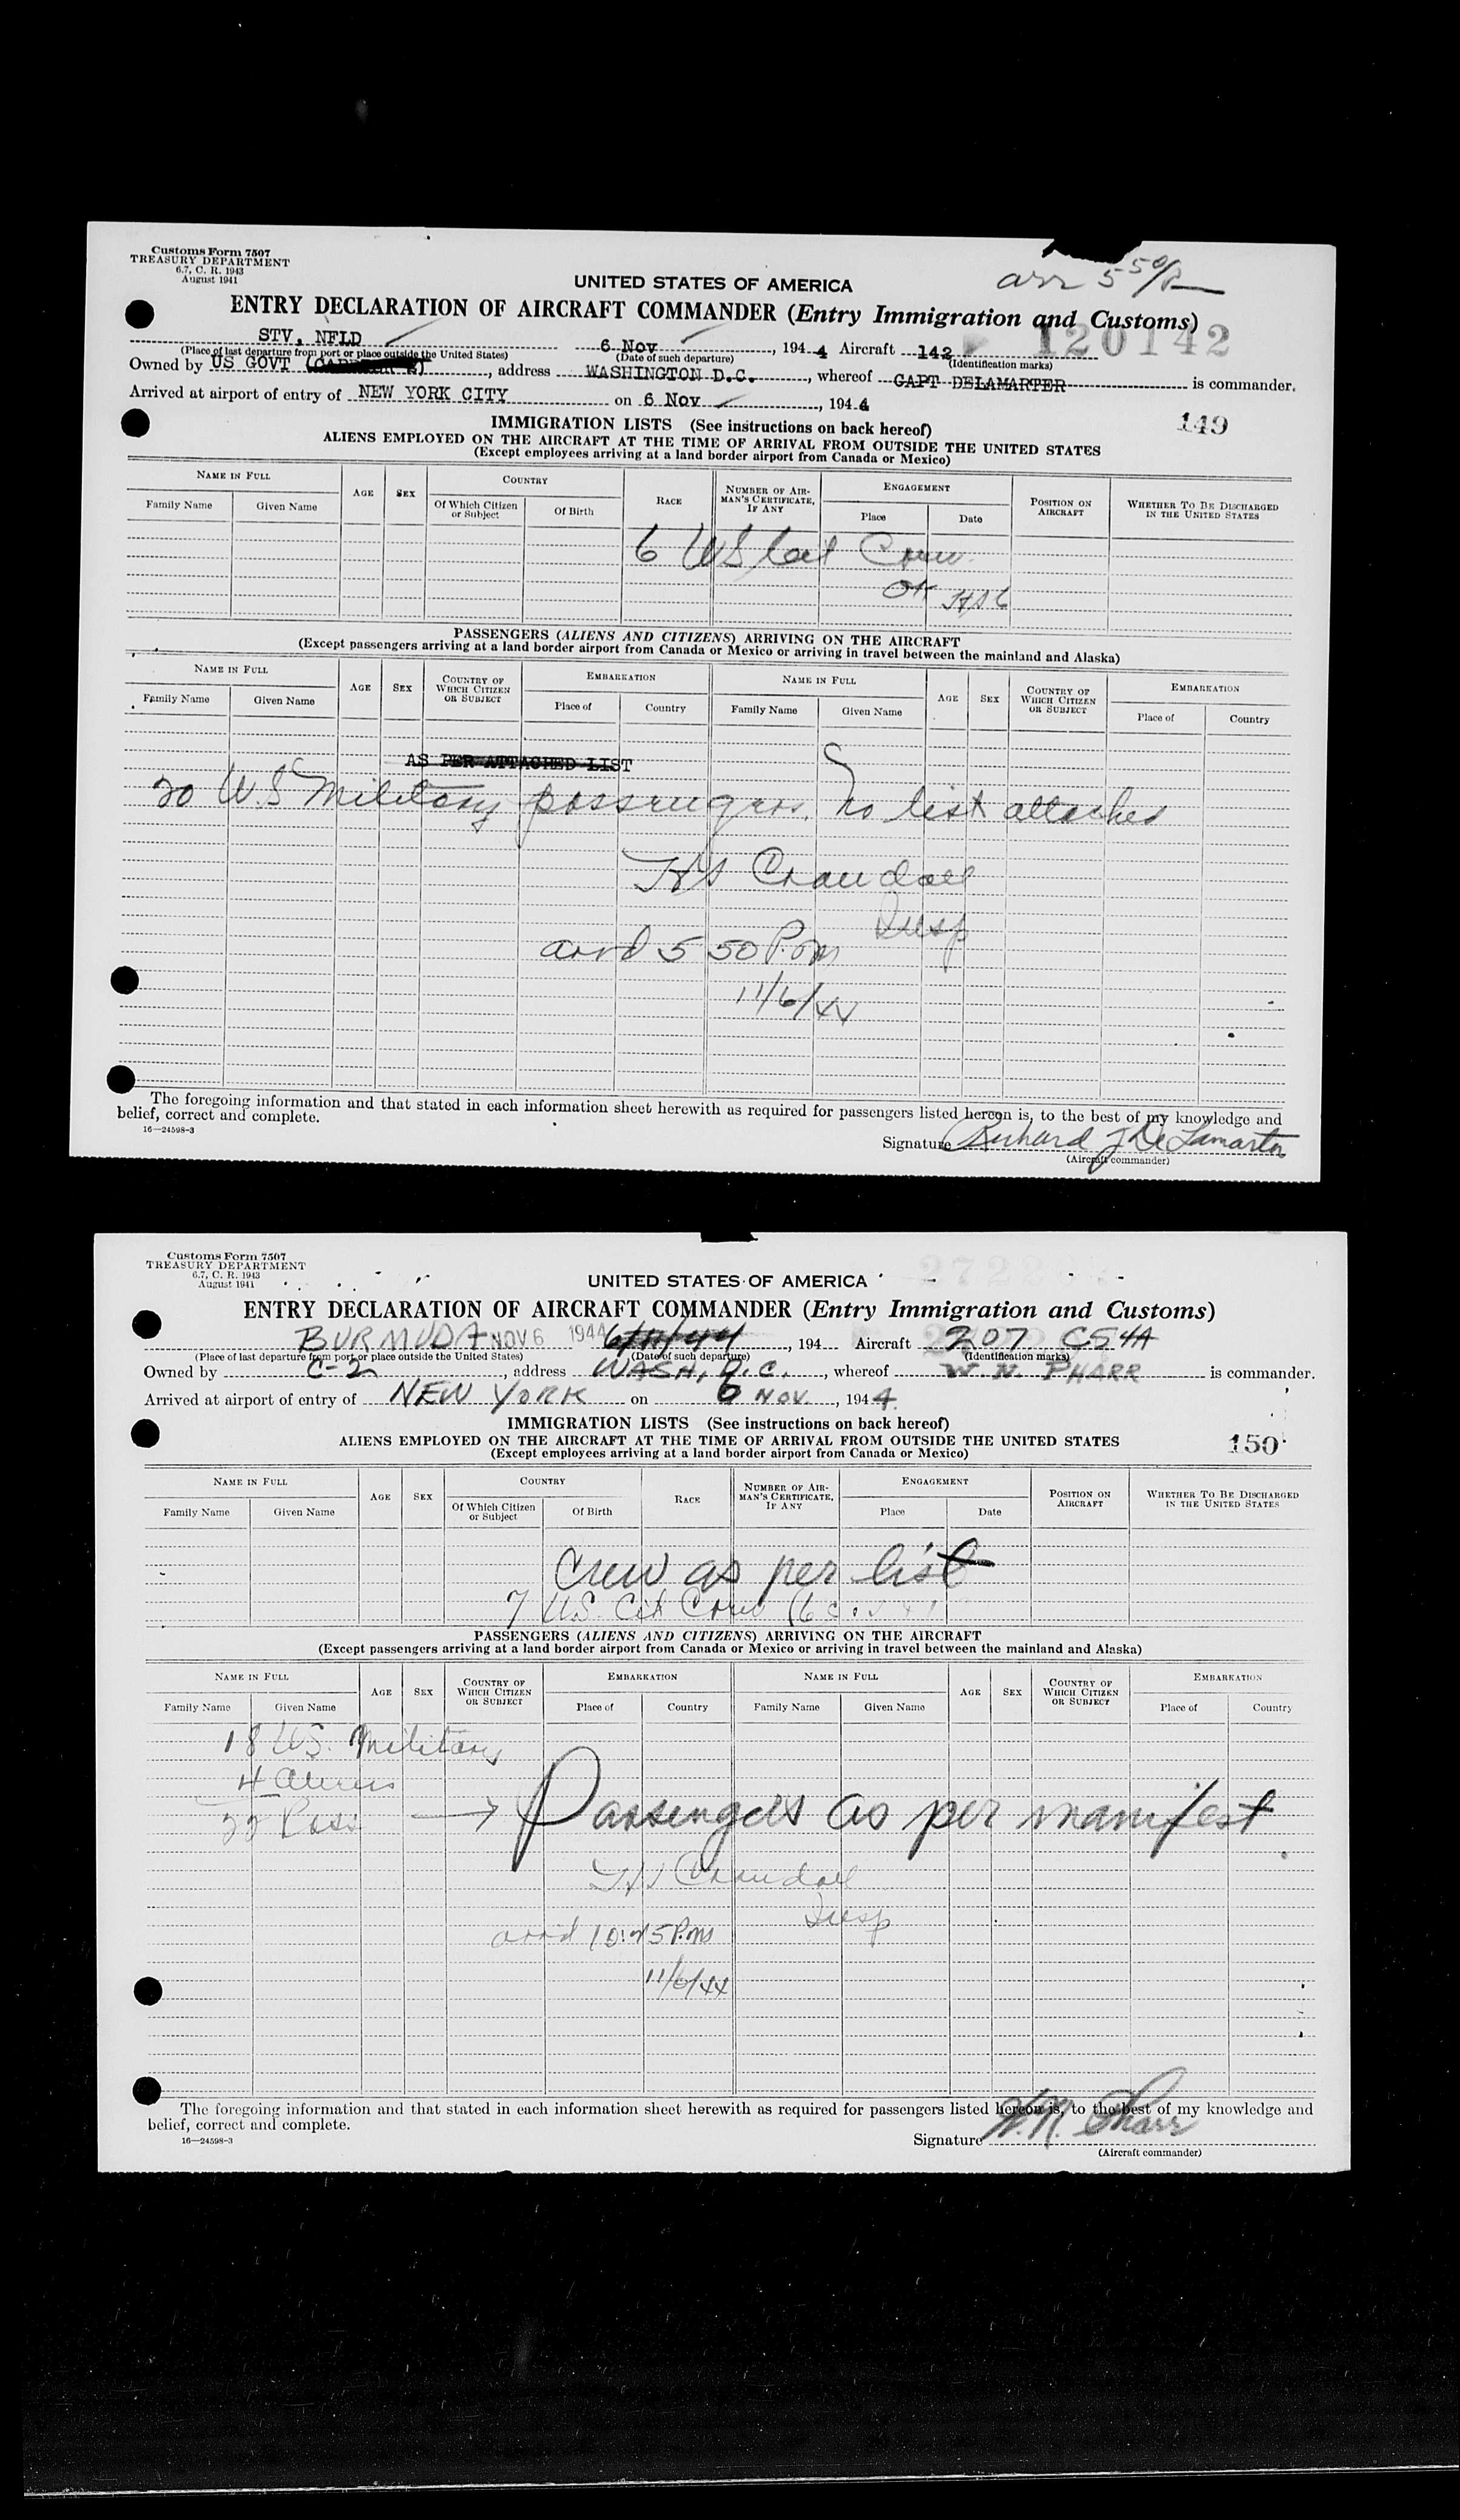 Customs Form 7507
TREASURY DEPARTMENT
6.7, C. R. 1943
August 1941
arr 5 50/P
UNITED STATES OF AMERICA
ENTRY DECLARATION OF AIRCRAFT COMMANDER (Entry Immigration and Customs)
STV, NFLD 6 Nov , 194 4 Aircraft 142 120142
(Place of last departure from port or place outside the United States) (Date of such departure) (Identification marks)
Owned by US GOVT , address WASHINGTON D.C. , whereof CAPT DELAMARTER is commander.
Arrived at airport of entry of NEW YORK CITY on 6 Nov , 194 4
149
IMMIGRATION LISTS (See instructions on back hereof)
ALIENS EMPLOYED ON THE AIRCRAFT AT THE TIME OF ARRIVAL FROM OUTSIDE THE UNITED STATES
(Except employees arriving at a land border airport from Canada or Mexico)
NAME IN FULL AGE SEX COUNTRY RACE NUMBER OF AIRMAN'S CERTIFICATE, IF ANY ENGAGEMENT POSITION ON AIRCRAFT WHETHER TO BE DISCHARGED IN THE UNITED STATES
Family Name Given Name Of Which Citizen or Subject Of Birth Place Date
6 US Cit Crew
OK HSC
PASSENGERS (ALIENS AND CITIZENS) ARRIVING ON THE AIRCRAFT
(Except passengers arriving at a land border airport from Canada or Mexico or arriving in travel between the mainland and Alaska)
NAME IN FULL AGE SEX COUNTRY OF WHICH CITIZEN OR SUBJECT EMBARKATION NAME IN FULL AGE SEX COUNTRY OF WHICH CITIZEN OR SUBJECT EMBARKATION
Family Name Given Name Place of Country Family Name Given Name Place of Country
AS PER ATTACHED LIST
20 U.S military passengers. No list attached
HS Crandall
Insp
arrd 5 50 P.m
11/6/44
The foregoing information and that stated in each information sheet herewith as required for passengers listed hereon is, to the best of my knowledge and
belief, correct and complete.
16—24598-3
Signature Richard J DeLamarter
(Aircraft commander)
Customs Form 7507
TREASURY DEPARTMENT
6.7, C. R. 1943
August 1941
UNITED STATES OF AMERICA
ENTRY DECLARATION OF AIRCRAFT COMMANDER (Entry Immigration and Customs)
BURMUDA NOV 6 1944 6/11/44 , 194 Aircraft 207 C54A
(Place of last departure from port or place outside the United States) (Date of such departure) (Identification marks)
Owned by C-2 , address WASH, D.C. , whereof W. N. PHARR is commander.
Arrived at airport of entry of NEW YORK on 6 NOV. , 194 4
IMMIGRATION LISTS (See instructions on back hereof)
ALIENS EMPLOYED ON THE AIRCRAFT AT THE TIME OF ARRIVAL FROM OUTSIDE THE UNITED STATES
150
(Except employees arriving at a land border airport from Canada or Mexico)
NAME IN FULL AGE SEX COUNTRY RACE NUMBER OF AIRMAN'S CERTIFICATE, IF ANY ENGAGEMENT POSITION ON AIRCRAFT WHETHER TO BE DISCHARGED IN THE UNITED STATES
Family Name Given Name Of Which Citizen or Subject Of Birth Place Date
Crew as per list
7 U.S. Cit Crew
PASSENGERS (ALIENS AND CITIZENS) ARRIVING ON THE AIRCRAFT
(Except passengers arriving at a land border airport from Canada or Mexico or arriving in travel between the mainland and Alaska)
NAME IN FULL AGE SEX COUNTRY OF WHICH CITIZEN OR SUBJECT EMBARKATION NAME IN FULL AGE SEX COUNTRY OF WHICH CITIZEN OR SUBJECT EMBARKATION
Family Name Given Name Place of Country Family Name Given Name Place of Country
18 U.S. Military
4 Aliens
22 Pass → Passengers as per manifest
HS Crandall
Insp
arrd 10:25 P.m
11/6/44
The foregoing information and that stated in each information sheet herewith as required for passengers listed hereon is, to the best of my knowledge and
belief, correct and complete.
16—24598-3
Signature W. N. Pharr
(Aircraft commander)